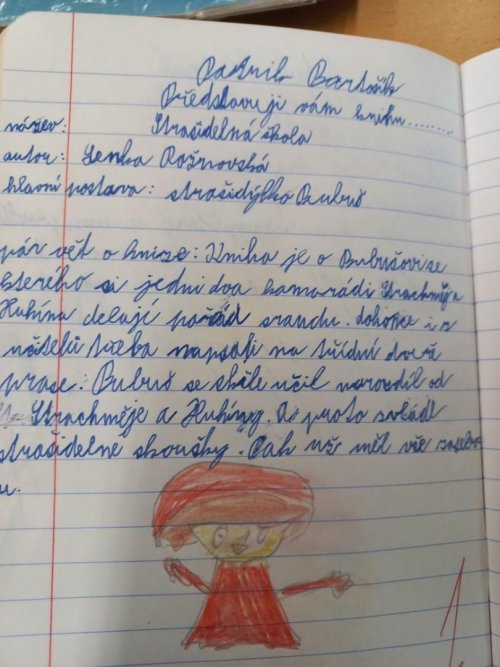 Patrik Bartošík
Představuji vám knihu........
název: Strašidelná škola
autor: Lenka Rožnovská
hlavní postava: strašidýlko Bubuš
pár vět o knize: Kniha je o Bubušovi se
kterého si jedni dva kamarádi Strachměj a
Huhína dělají pořád srandu. dokonce i z
učitelů třeba napsali na třídní dveře
prase. Bubuš se stále učil narozdíl od
Strachměje a Huhíny. A proto zvládl
strašidelné zkoušky. Pak už měl vše
u.
1